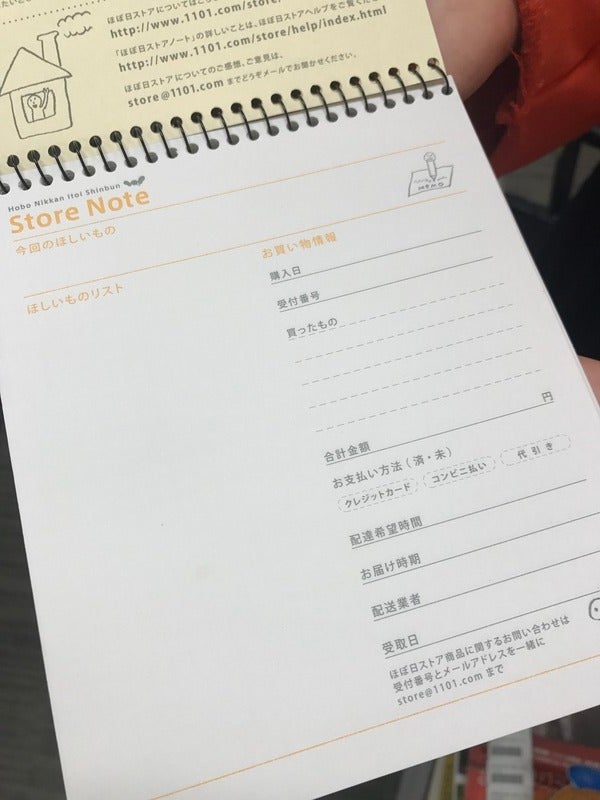 ほぼ日ストアについてはこち
http://www.1101.com/store/
「ほぼ日ストアノート」の詳しいことは、ほぼ日ストアヘルプをご覧くだ
http://www.1101.com/store/help/index.html
ほぼ日ストアについてのご感想、ご意見は、
store@1101.com までどうぞメールでお聞かせください。
Hobo Nikkan Itoi Shinbun
Store Note
MEMO
今回のほしいもの
ほしいものリスト
お買い物情報
購入日
受付番号
買ったもの
円
合計金額
お支払い方法（済・未）
クレジットカード コンビニ払い 代引き
配達希望時間
お届け時期
配送業者
受取日
ほぼ日ストア商品に関するお問い合わせは
受付番号とメールアドレスを一緒に
store@1101.com まで